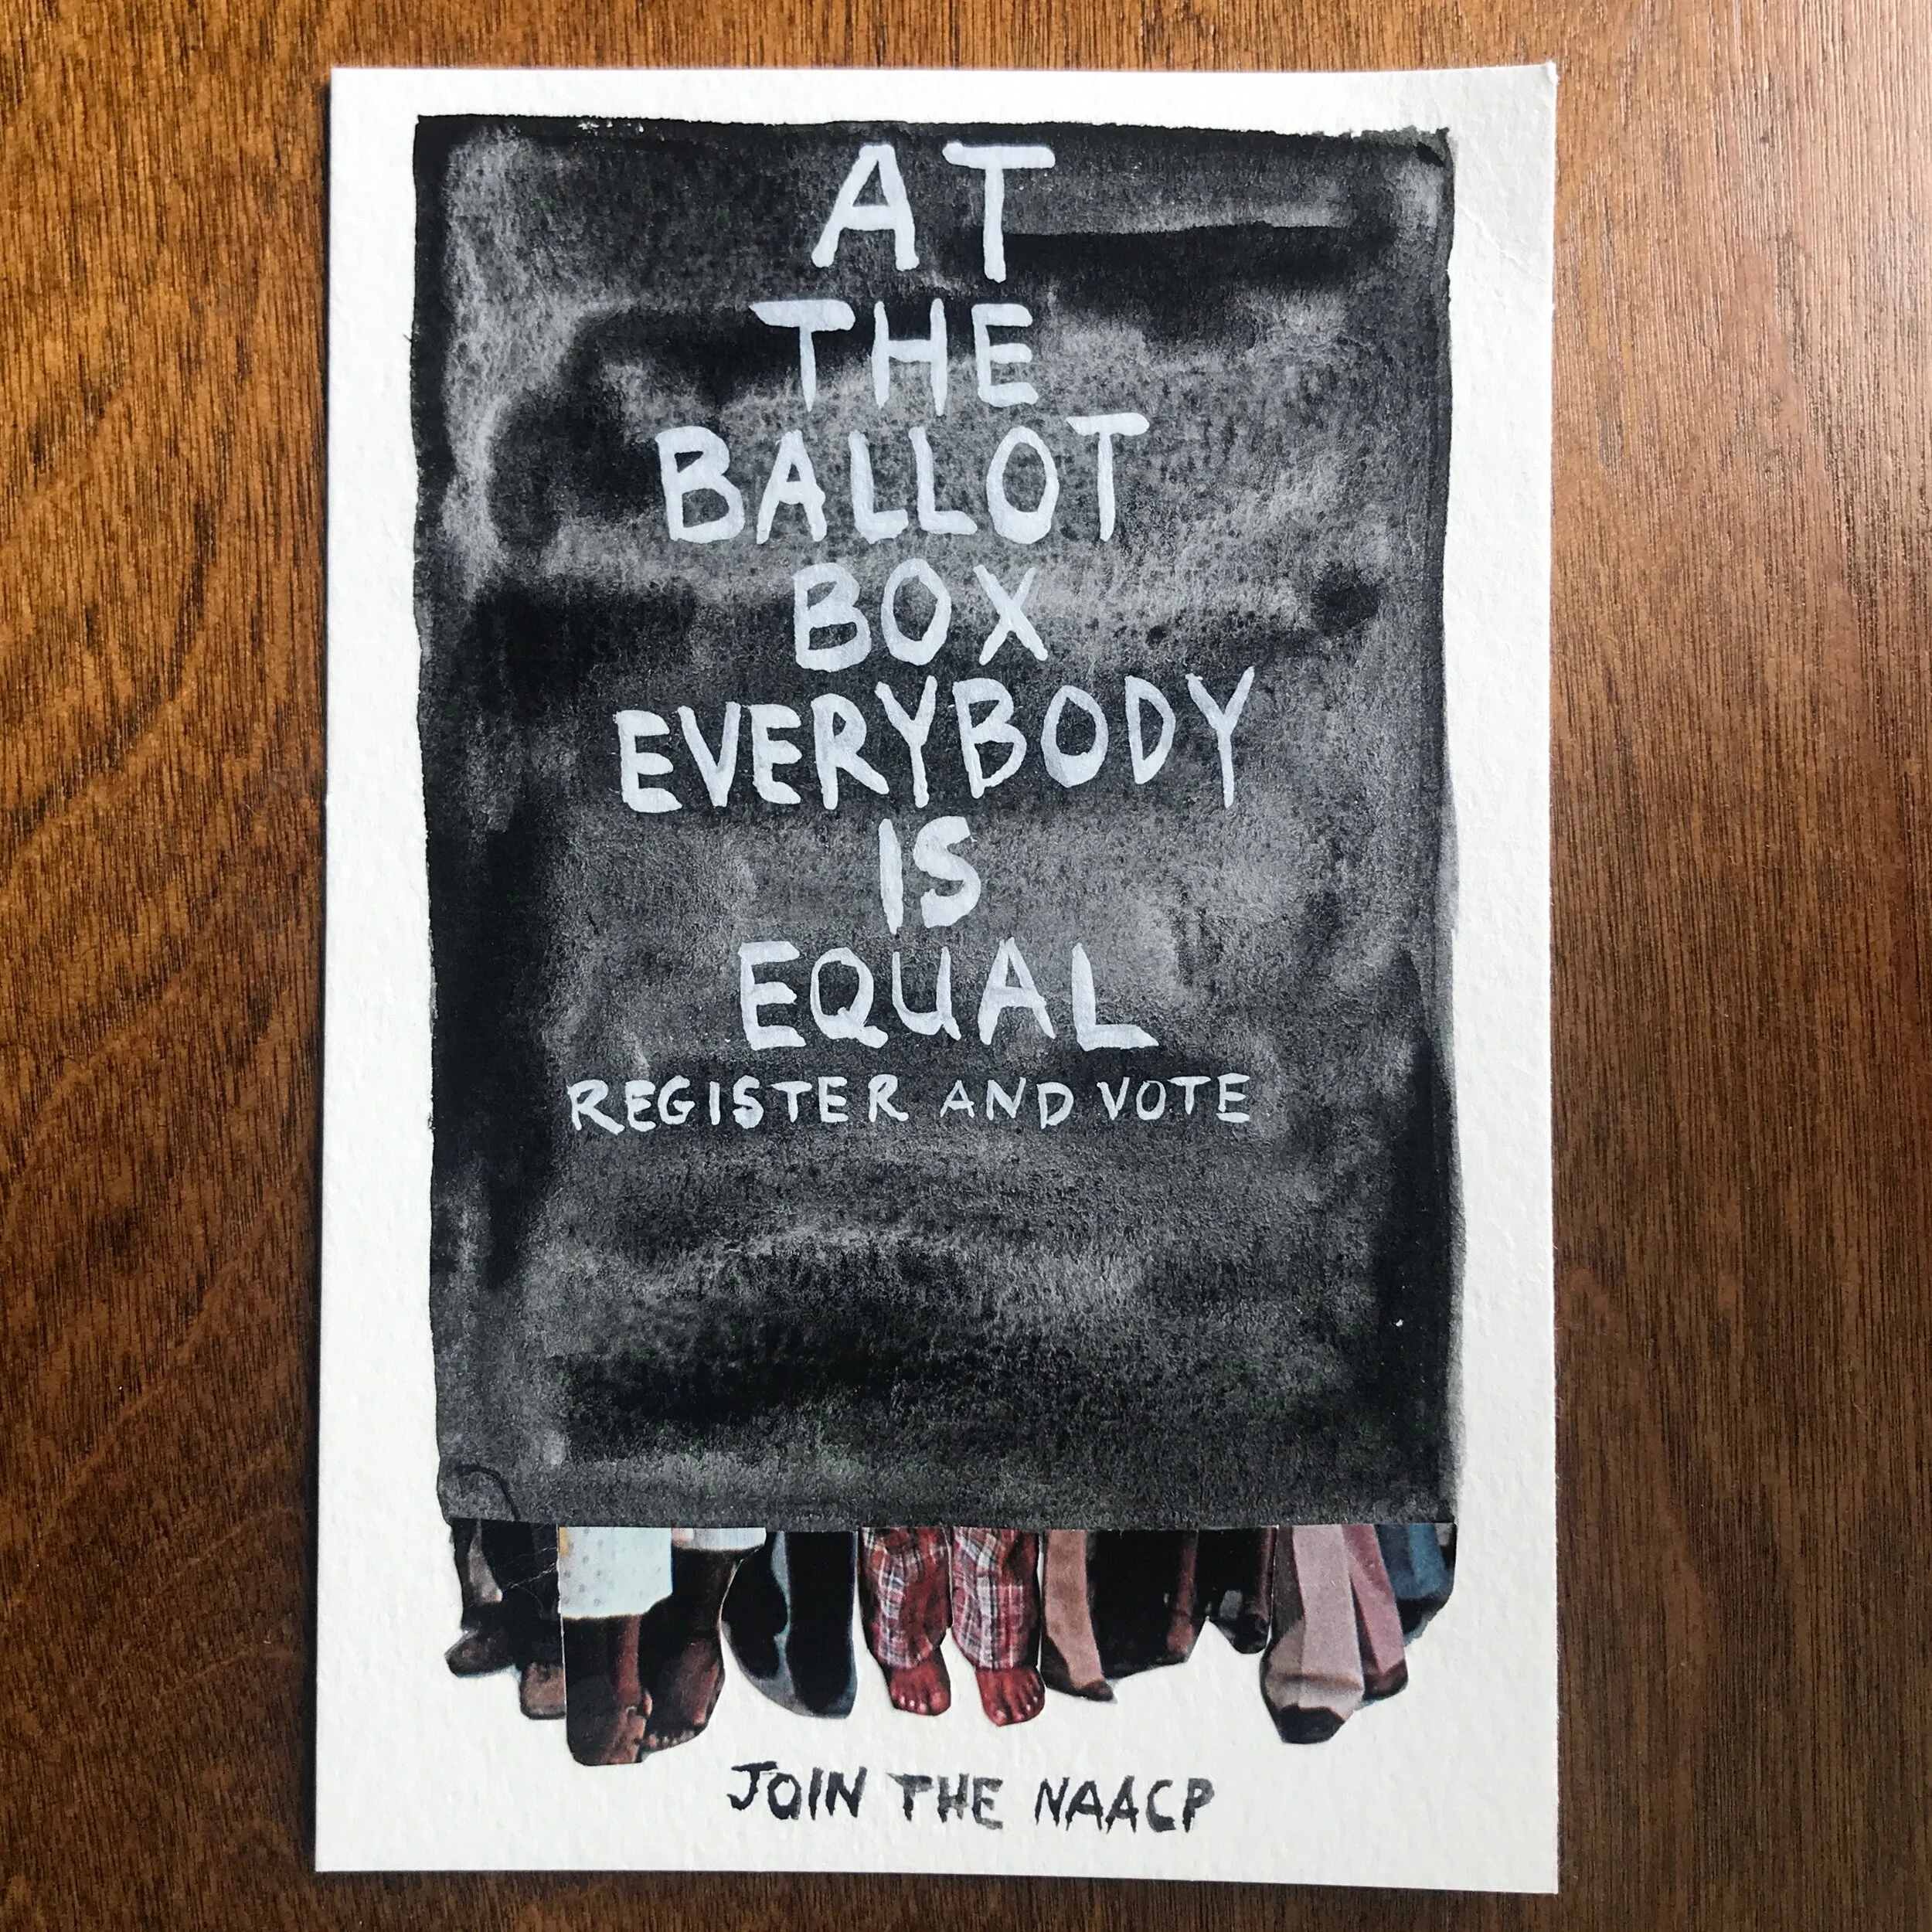 AT
THE
BALLOT
BOX
EVERYBODY
IS
EQUAL
REGISTER AND VOTE
JOIN THE NAACP